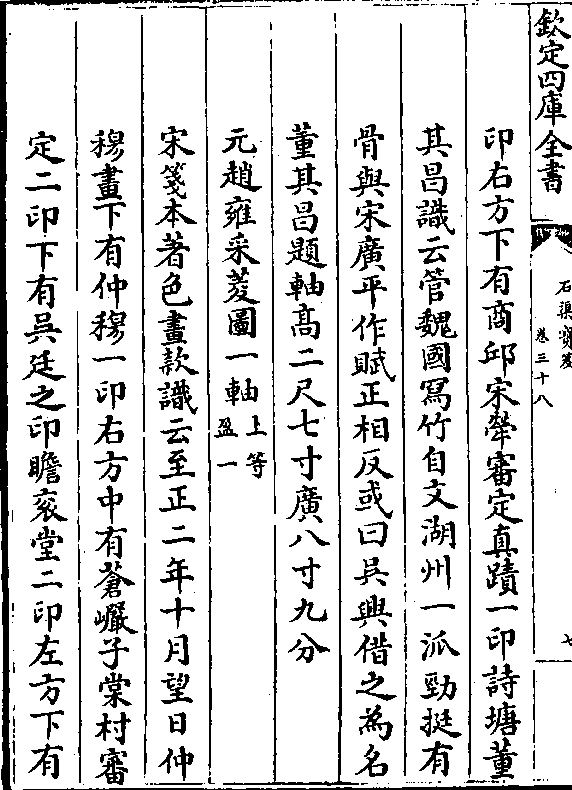 欽定四庫全書
石渠寳笈
卷三十八
七
印右方下有商邱宋犖審定真蹟一印詩塘董
其昌識云管魏國寫竹自文湖州一派勁挺有
骨與宋廣平作賦正相反或曰吳興借之為名
董其昌題軸髙二尺七寸廣八寸九分
元趙雍采菱圖一軸上等
盈一
宋箋本著色畫款識云至正二年十月望日仲
穆畫下有仲穆一印右方中有蒼巗子棠村審
定二印下有吳廷之印瞻衮堂二印左方下有